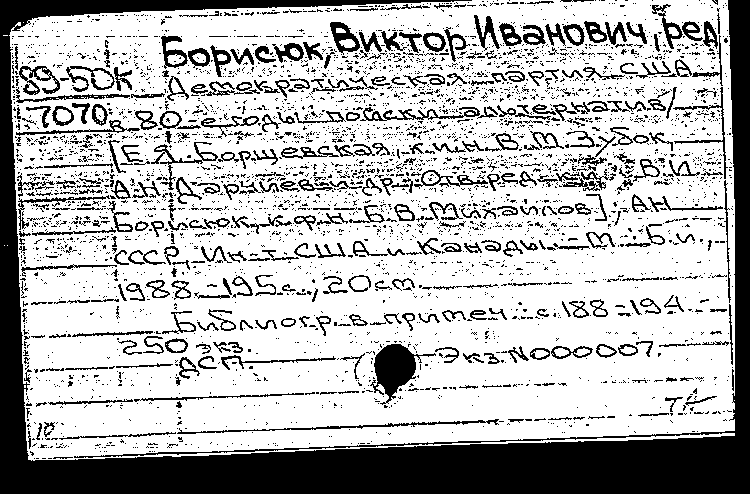 Борисюк, Виктор Иванович, ред.
89-50К Демократическая партия США
7070 в 80-е годы: поиски альтернатив /
[Е.Я. Борщевская, к.и.н. В.М. Зубок,
А.Н. Дарчиев и др.; Отв. ред. к.и.н. В.И.
Борисюк, к.ф.н. Б.В. Михайлов]; АН
СССР, Ин-т США и Канады. - М.: Б.и.,
1988. - 195 с.; 20 см.
Библиогр. в примеч.: с. 188-194. -
250 экз.
ДСП. Экз. N000007.
ТА
10